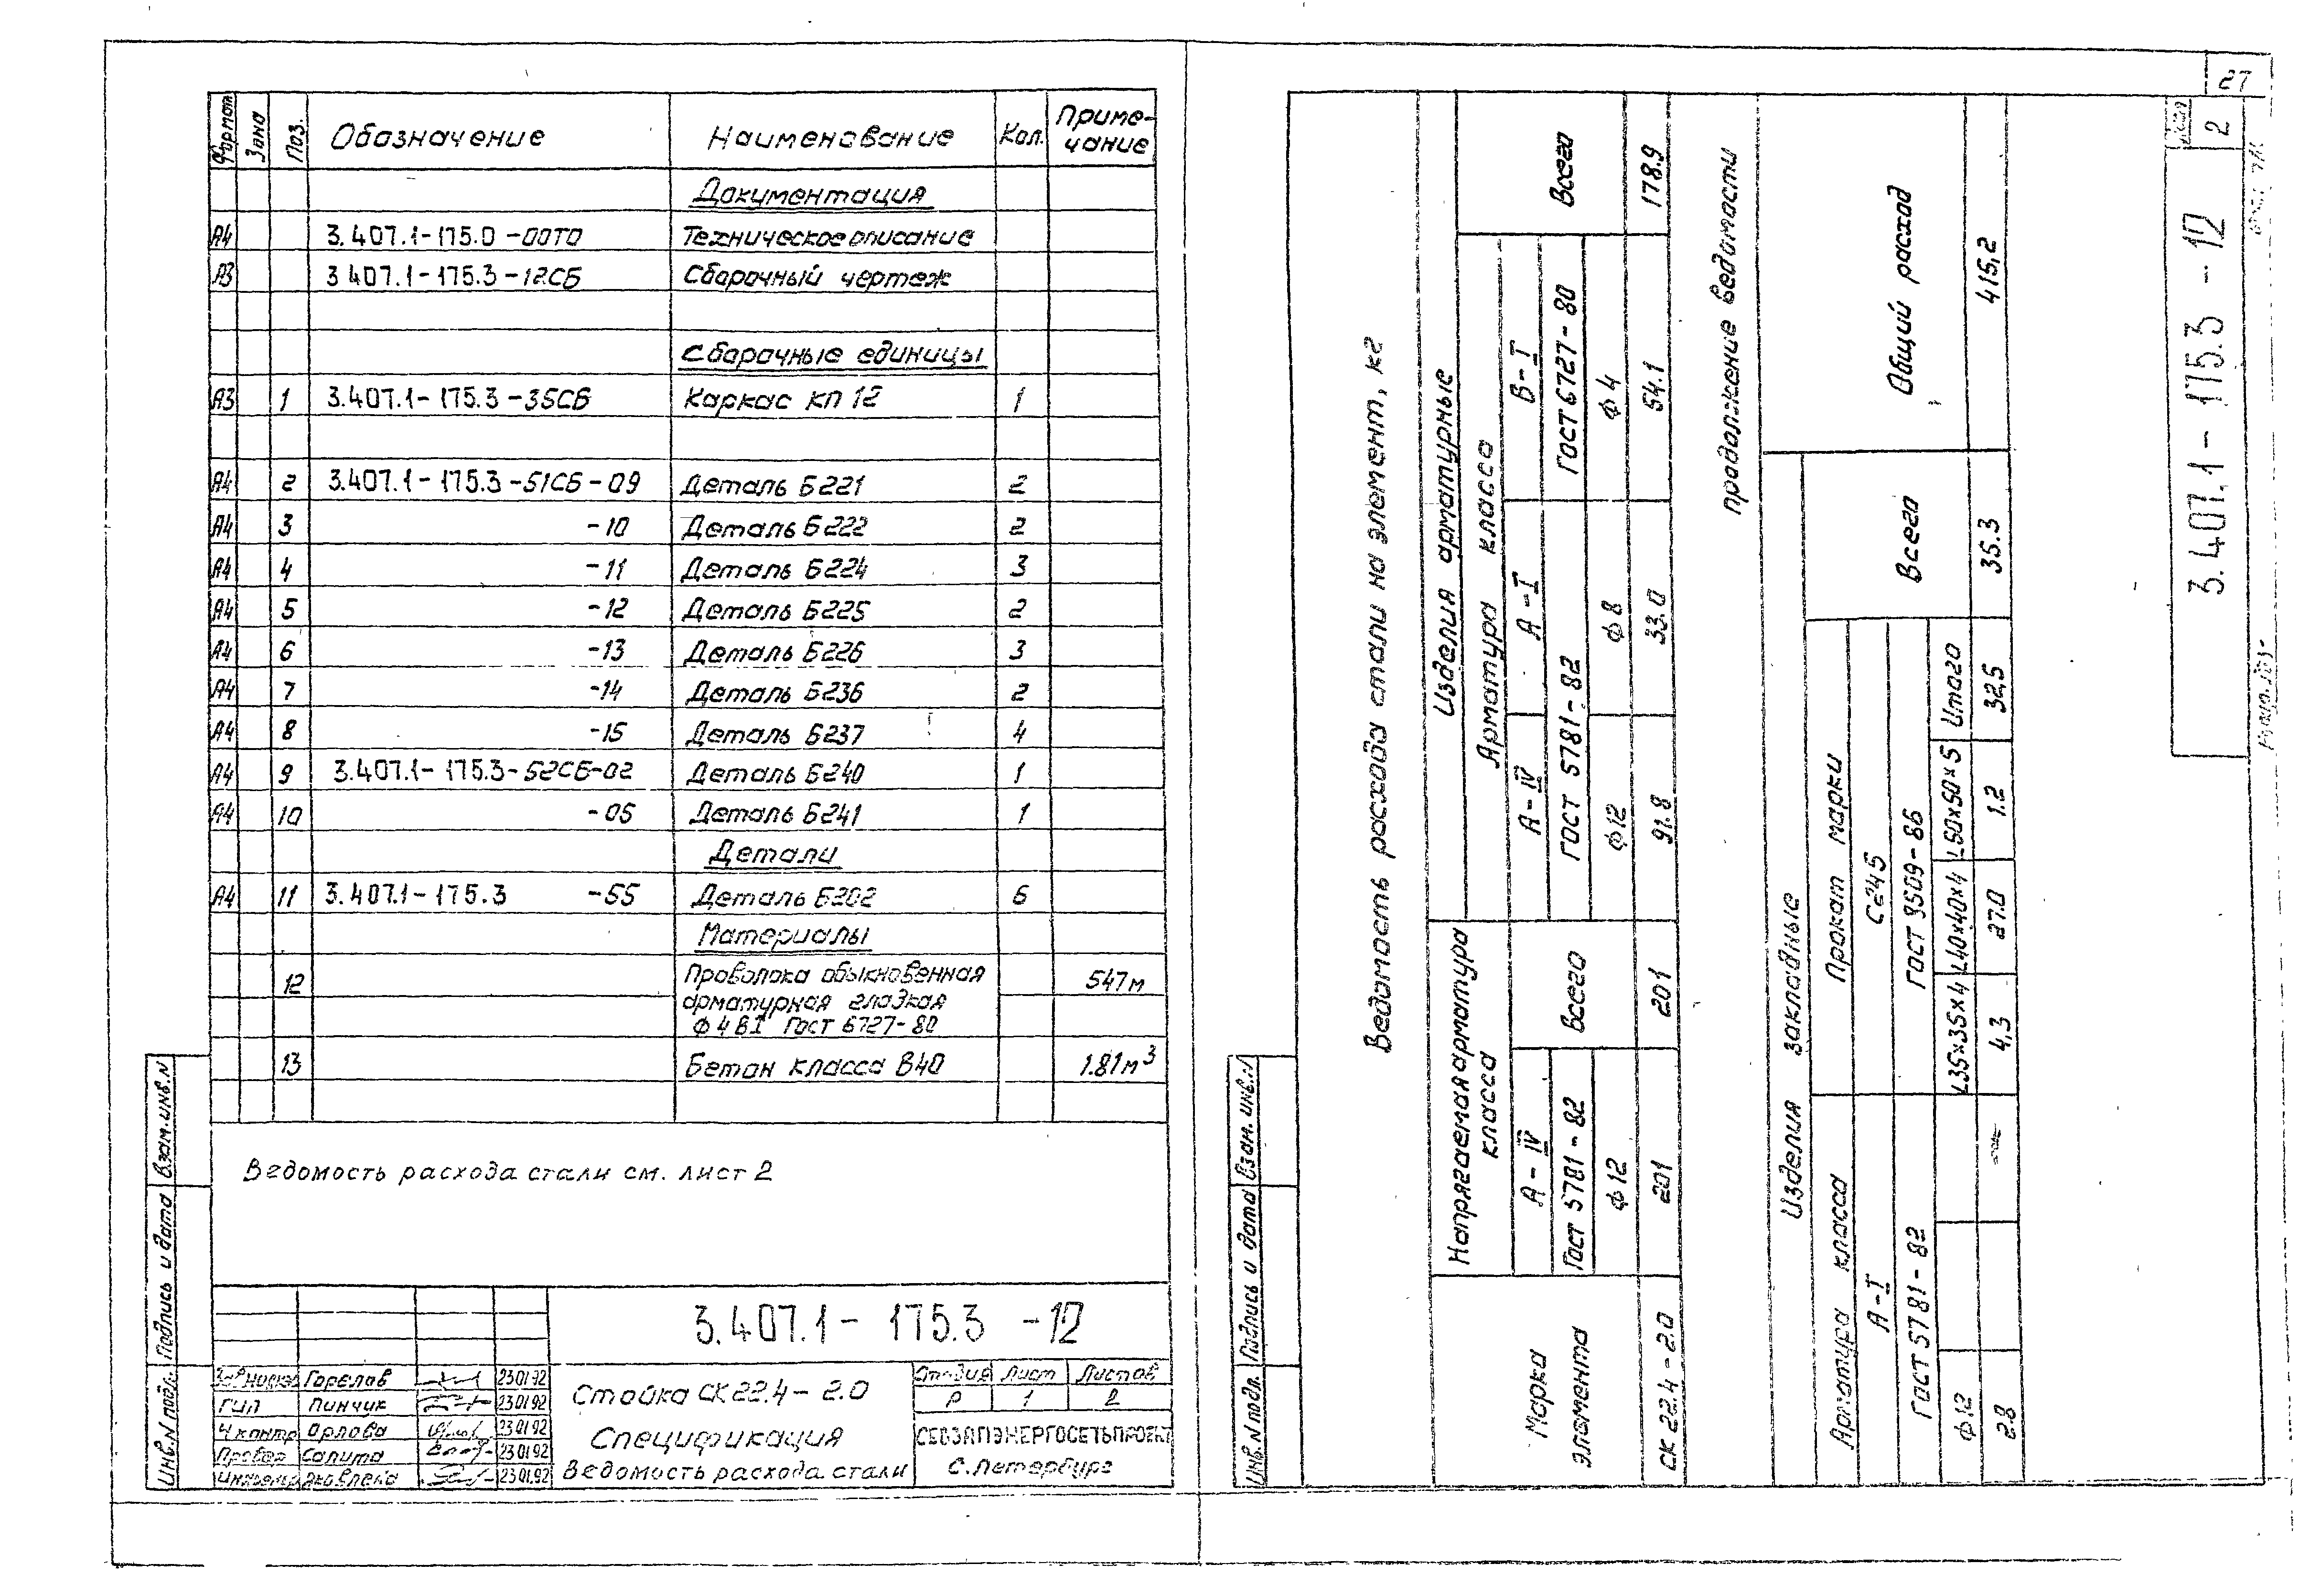 Формат Зона Поз. Обозначение Наименование Кол. Приме-
чание
Документация
А4 3.407.1-175.0-00ТО Техническое описание
А3 3 407.1-175.3-12СБ Сборочный чертеж
Сборочные единицы
А3 1 3.407.1-175.3-35СБ Каркас КП 12 1
А4 2 3.407.1-175.3-51СБ-09 Деталь Б221 2
А4 3 -10 Деталь Б222 2
А4 4 -11 Деталь Б224 3
А4 5 -12 Деталь Б225 2
А4 6 -13 Деталь Б226 3
А4 7 -14 Деталь Б236 2
А4 8 -15 Деталь Б237 4
А4 9 3.407.1-175.3-52СБ-02 Деталь Б240 1
А4 10 -05 Деталь Б241 1
Детали
А4 11 3.407.1-175.3 -55 Деталь Б202 6
Материалы
12 Проволока обыкновенная 547м
арматурная гладкая
Ф 4 ВI Гост 6727-80
13 Бетон класса В40 1.81м³
Ведомость расхода стали см. лист 2
Инв.N подл. Подпись и дата Взам.инв.N
3.407.1-175.3 -12
Горелов 23.01.92
ГИП Пинчук 23.01.92
Н контр Орлова 23.01.92
Провер Салита 23.01.92
Инженер Яковлева 23.01.92
Стойка СК 22.4-2.0
Спецификация
Ведомость расхода стали
Стадия Лист Листов
Р 1 2
СЕВЗАПЭНЕРГОСЕТЬПРОЕКТ
С.Петербург
27
Ведомость расхода стали на элемент, кг
Марка
элемента
Напрягаемая арматура
класса
Изделия арматурные
Арматура класса
А-IV Всего А-IV А-I В-I Всего
Гост 5781-82 ГОСТ 5781-82 ГОСТ 6727-80
Ф12 Ф12 Ф8 Ф4
СК 22.4-2.0 201 201 91.8 33.0 54.1 178.9
продолжение ведомости
Изделия закладные
Общий расход
Арматура класса Прокат марки Всего
А-I С245
ГОСТ 5781-82 ГОСТ 8509-86
Ф12 L35×35×4 L40×40×4 L50×50×5 Итого
2.8 4,3 27.0 1.2 32,5 35.3 415,2
Инв.N подл. Подпись и дата Взам. инв.N
3.407.1-175.3-12
Лист
2